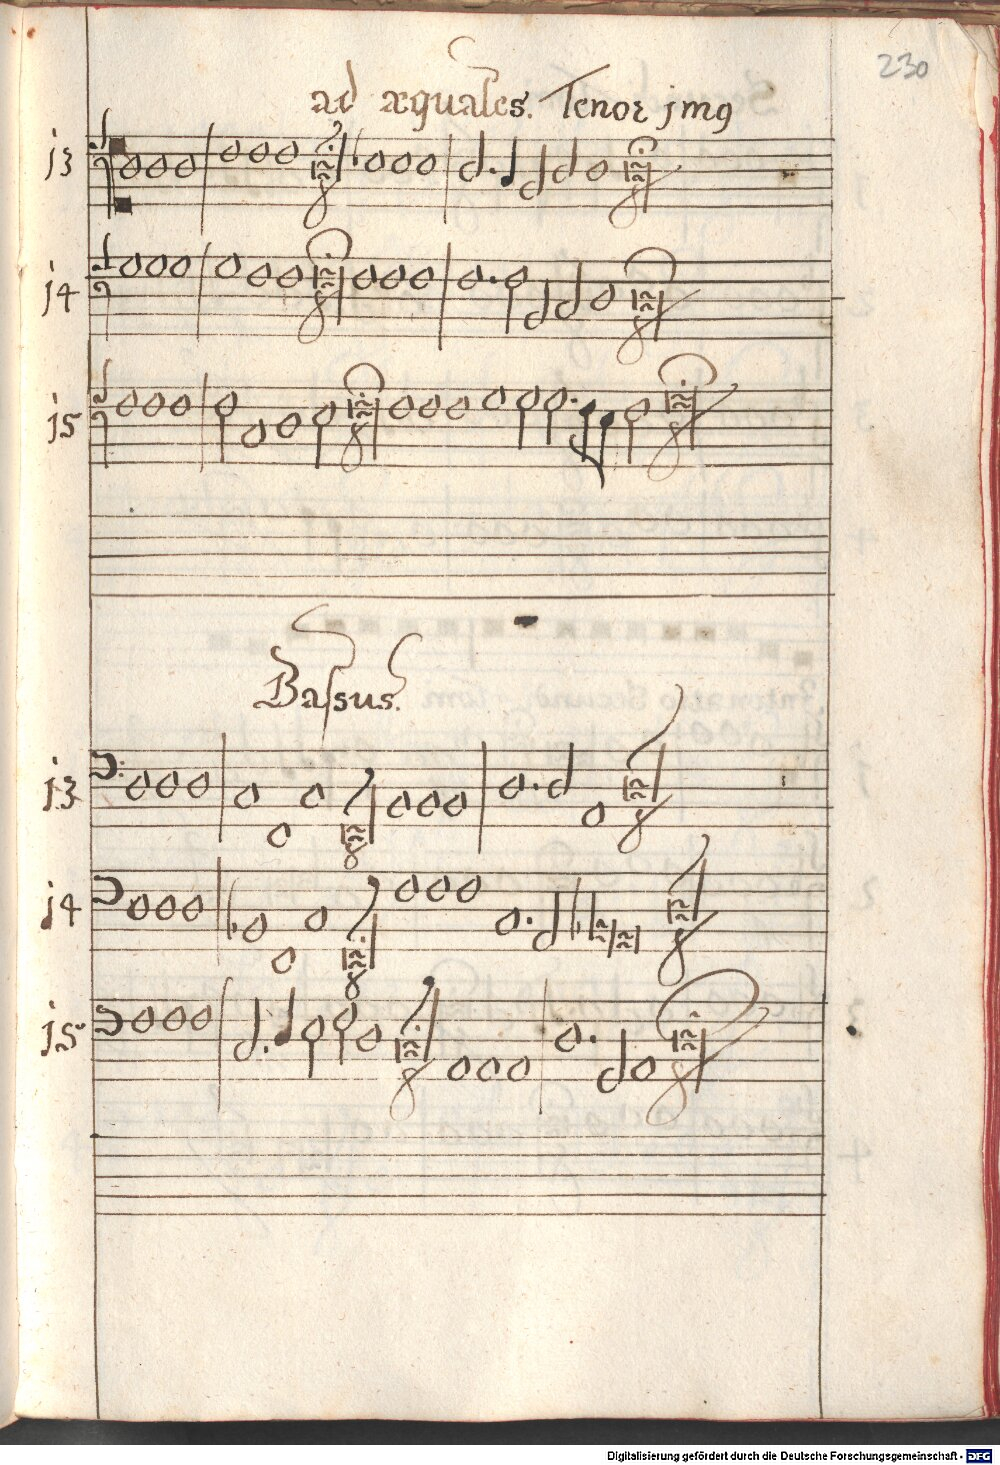 230
ad æquales. Tenor jmꝯ
j3
j4
j5
Bassus.
j3
j4
j5
Digitalisierung gefördert durch die Deutsche Forschungsgemeinschaft - DFG